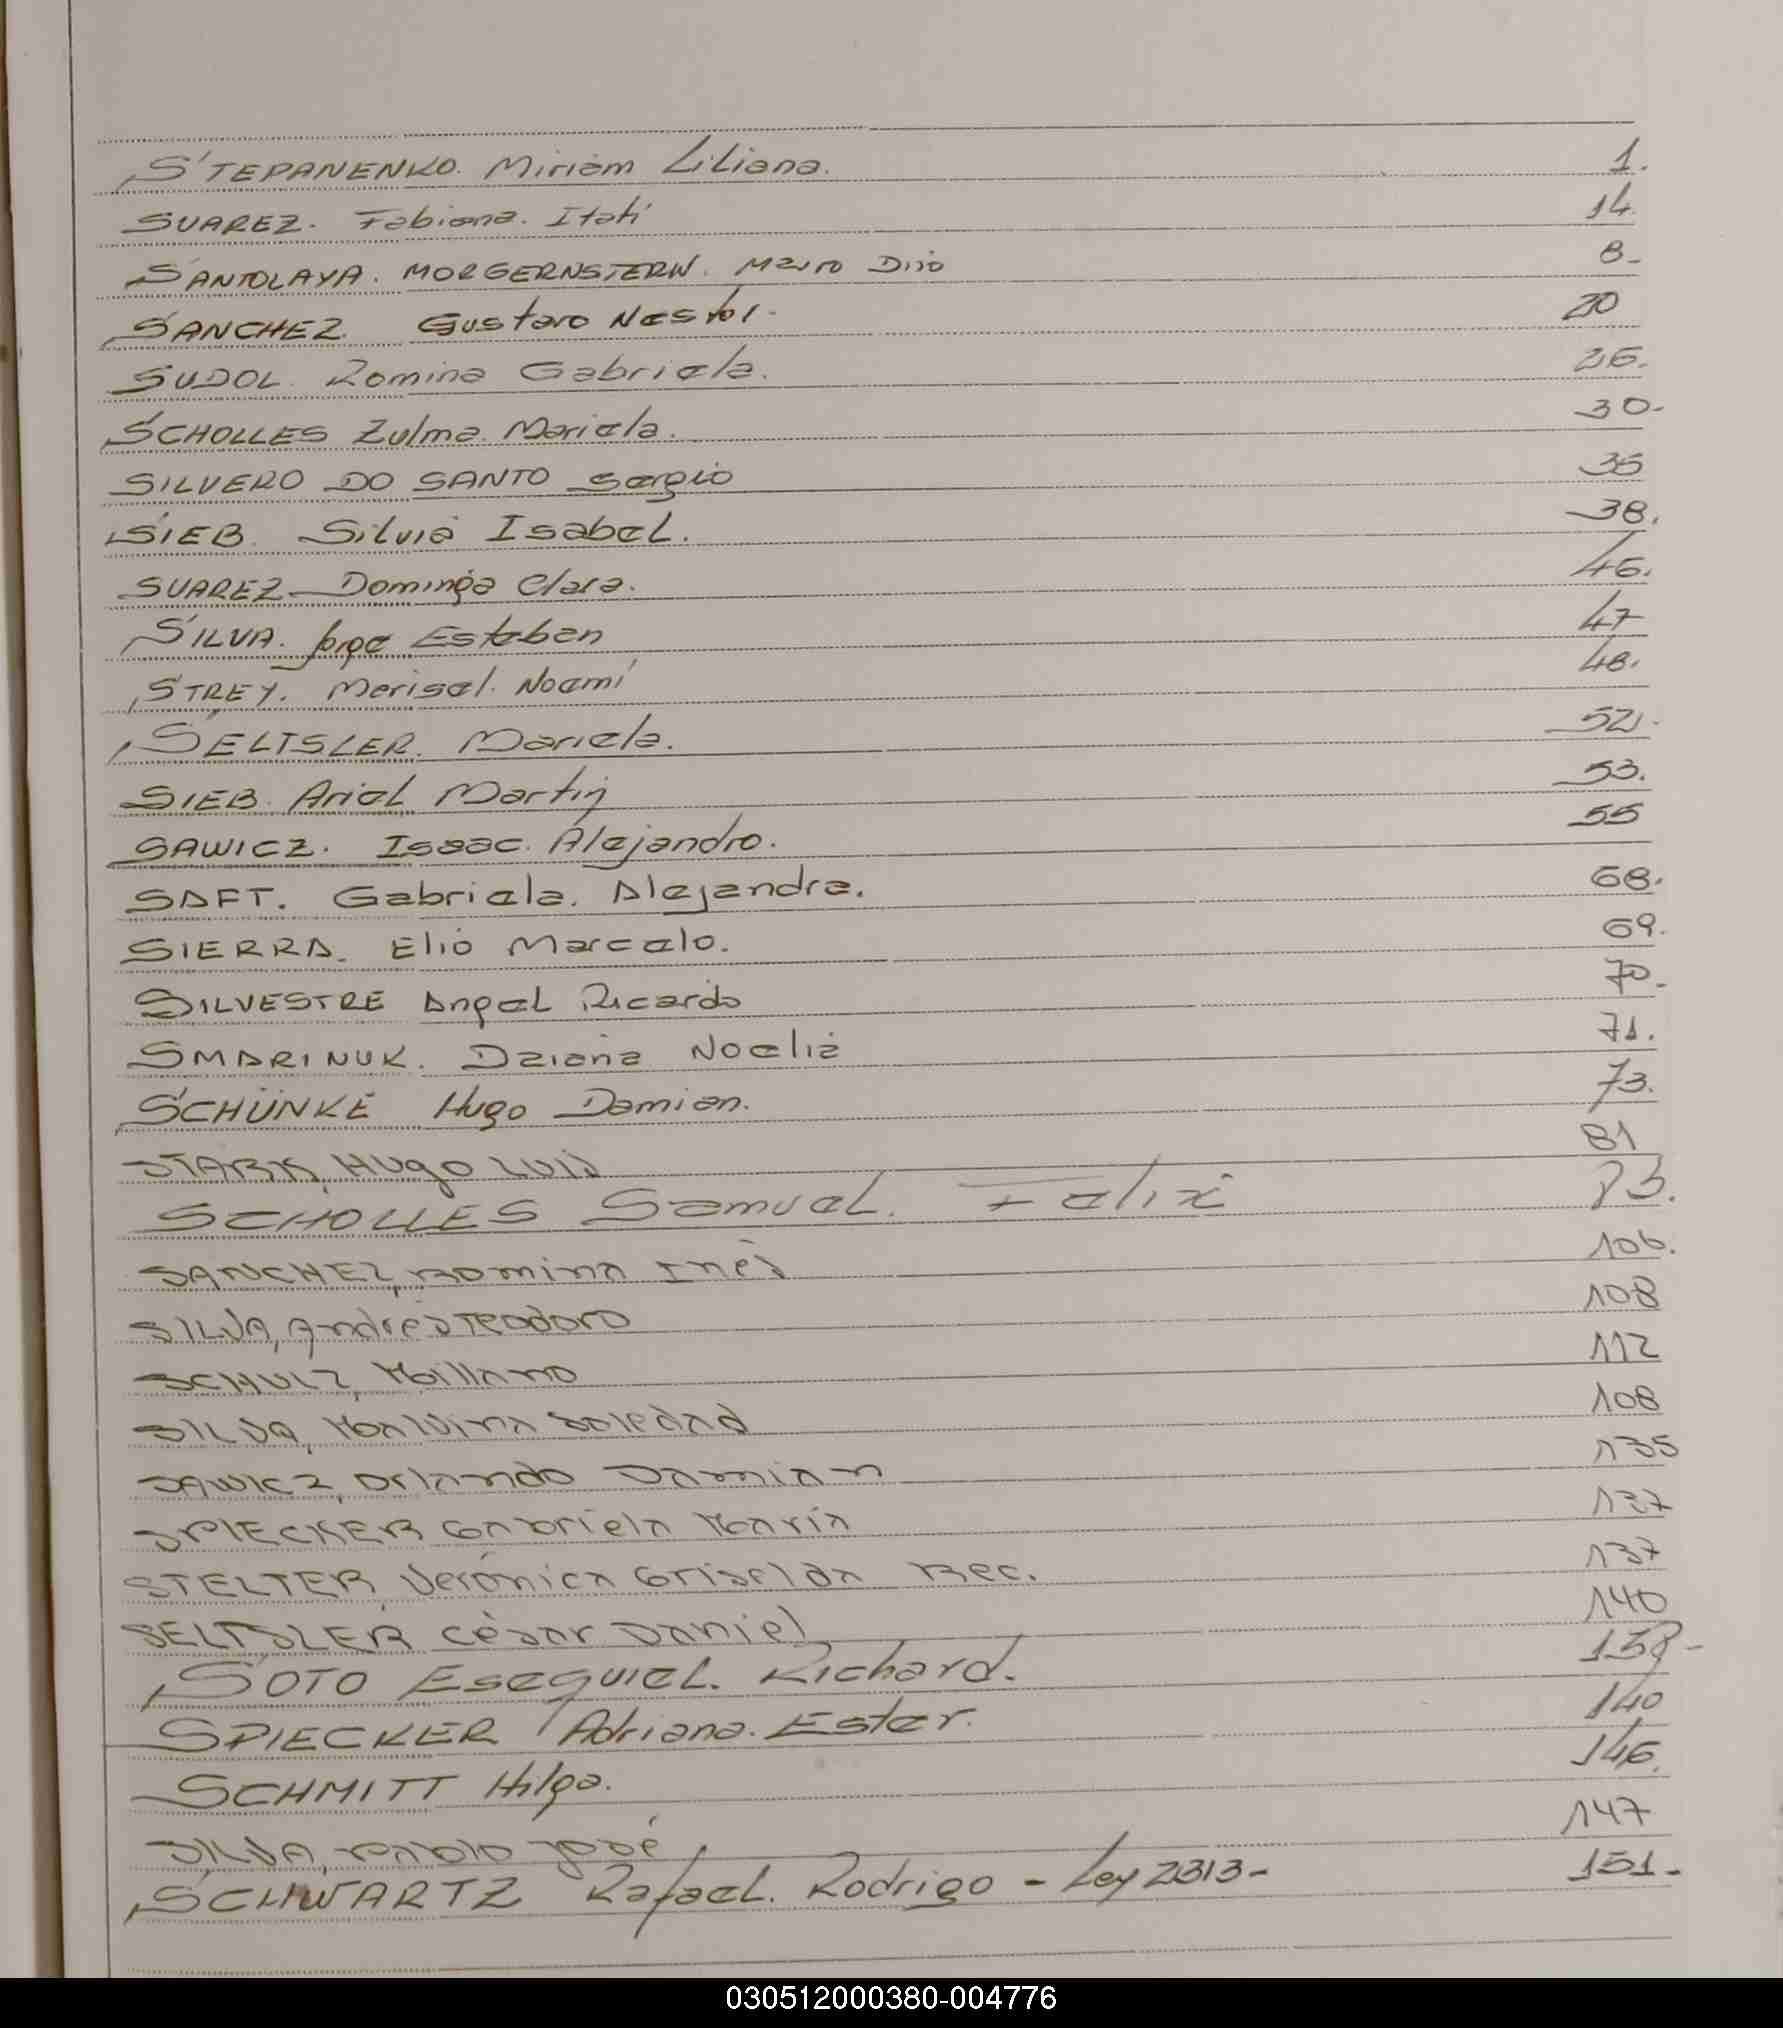 STEPANENKO. Miriam Liliana. 1.
SUAREZ. Fabiana. Itati 14.
SANTOLAYA. MORGERNSTERN. Mauro Dino 8-
SANCHEZ. Gustavo Nestor. 20
SUDOL. Romina Gabriela. 26.
SCHOLLES Zulma. Mariela. 30-
SILVERO DO SANTO Sergio 35
SIEB. Silvia Isabel. 38.
SUAREZ Dominga Clara. 46.
SILVA. Jorge Esteban 47
STREY. Marisel. Noemí 48.
SELTSLER. Mariela. 52.
SIEB. Ariel Martin 53.
SAWICZ. Isaac. Alejandro. 55
SAFT. Gabriela. Alejandra. 68.
SIERRA. Elio Marcelo. 69.
SILVESTRE Angel Ricardo 70.
SMARINUK. Daiana Noelia 71.
SCHÜNKE Hugo Damian. 73.
STARK, Hugo Luis 81
SCHOLLES Samuel. Felix 83.
SANCHEZ, Romina Inés 106.
SILVA, Andrés Teodoro 108
SCHULZ, Milland 112
SILVA, Malvina Soledad 108
SAWICZ, Orlando Damian 135
SPIECKER Gabriela María 137
STELTER, Verónica Griselda Rec. 137
SELTSLER César Daniel 140
SOTO Esequiel. Richard. 138-
SPIECKER Adriana. Ester. 140
SCHMITT Hilga. 146.
SILVA, Pablo José 147
SCHWARTZ Rafael. Rodrigo - Ley 2313- 151-
030512000380-004776